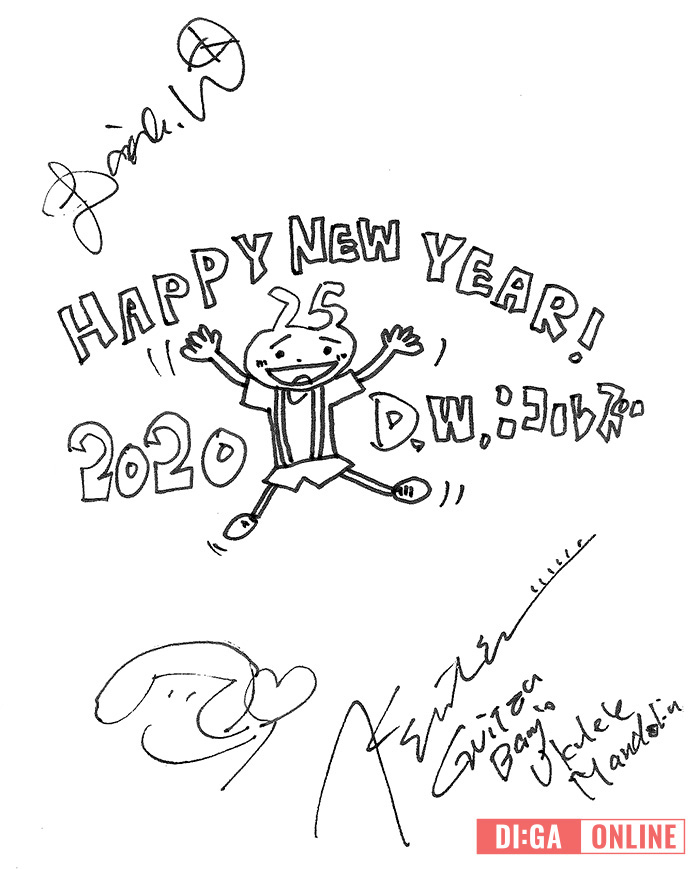 HAPPY NEW YEAR!
25
2020 D.W.ニコルズ
Guitar
Banjo
Ukulele
Mandolin
DI:GA ONLINE